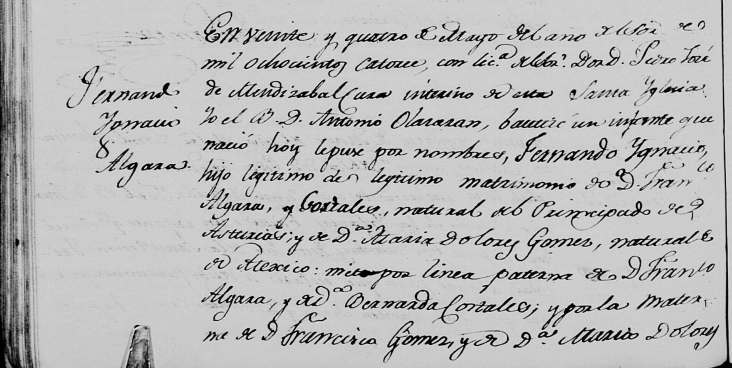 Fernand
Ygnacio
&
Algara
En veinte y quatro de Mayo del año del Sor. de
mil ochocientos catorce, con lica. del Sr. Dor. D. Pedro José
de Mendizabal Cura interino de esta Santa Yglesia
Yo el B. D. Antonio Olavaran, bautizé un infante que
nació hoy le puse por nombres, Fernando Ygnacio,
hijo legitimo de legitimo matrimonio de D. Franco
Algara, y Cortales, natural del Principado de
Asturias; y de Da. Maria Dolores Gomez, natural
de Mexico: nieto por linea paterna de D Franco
Algara, y de Da. Bernarda Cortales; y por la mater-
na de D Francisco Gómez, y de Da. Maria Dolores